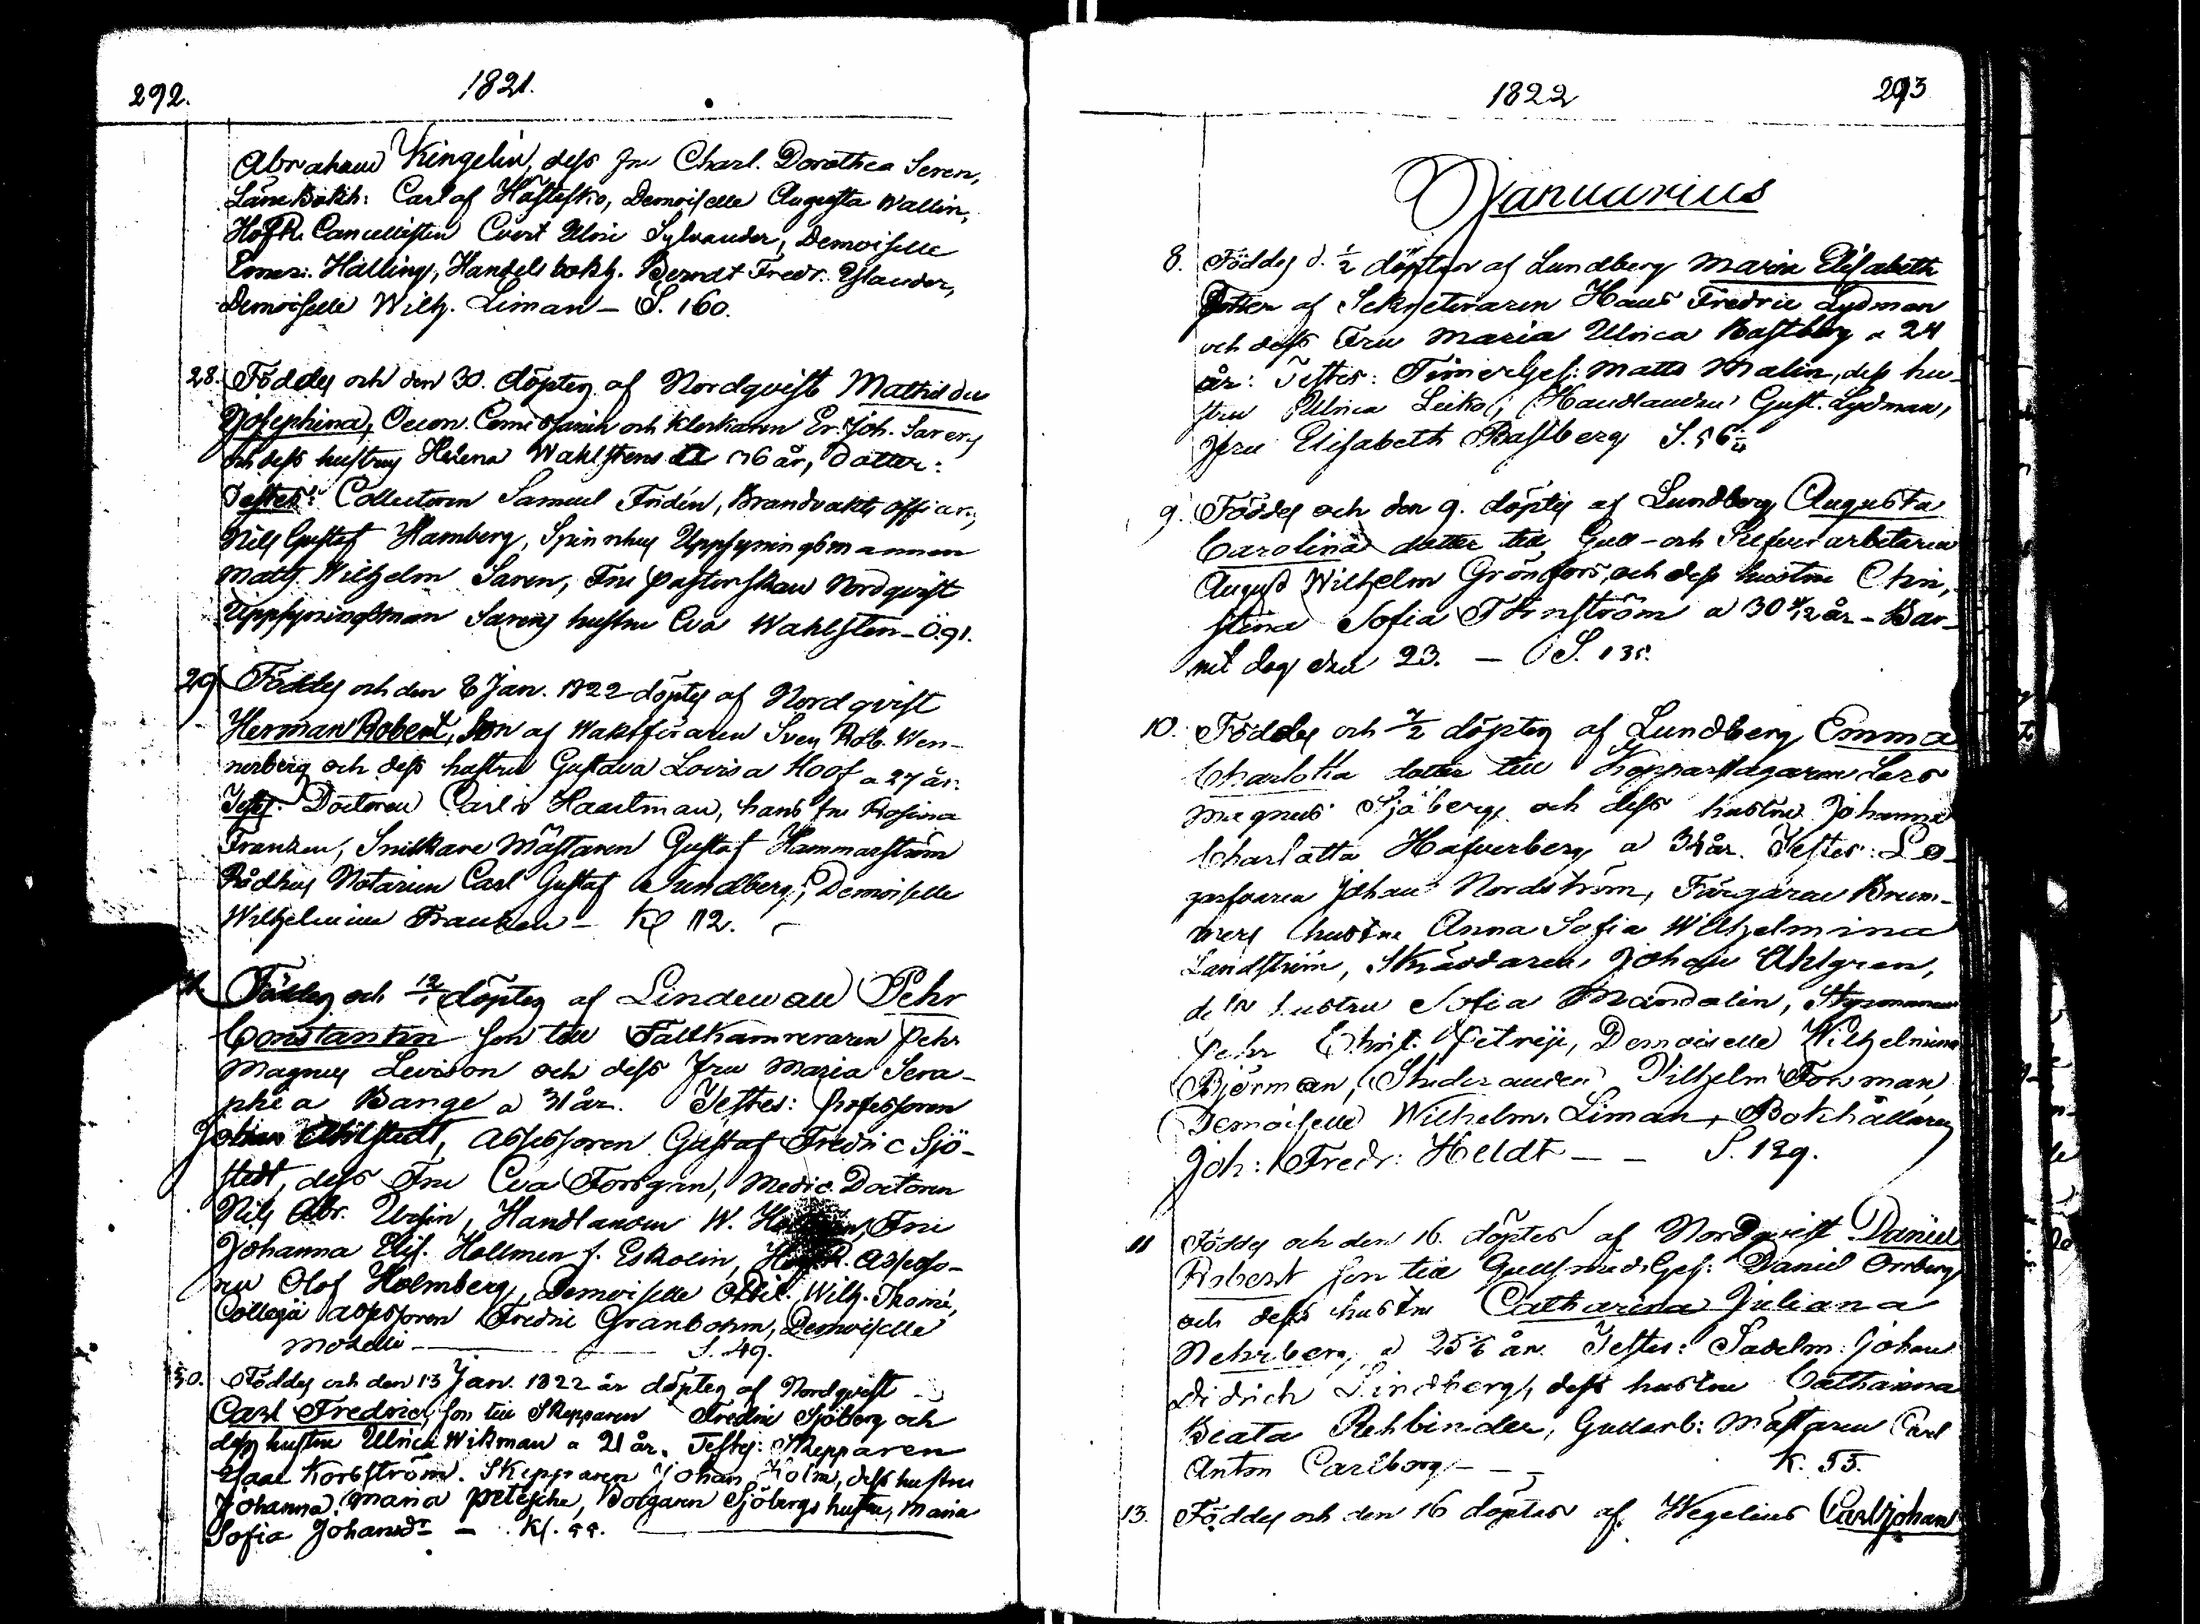 292.
1821.
Abraham Kingelin, dess fru Charl. Dorothea Seren,
Läns Bokh: Carl af Hästesko, Demoiselle Augusta Wallin,
HofR. Cancellisten Evert Ulric Sylvander, Demoiselle
Hälling, Handels bokh. Berndt Fredr. Ylander,
Demoiselle Wilh. Liman – S. 160.
28. Föddes och den 30. döptes af Nordqvist Mathilda
Josephina, Oecon. Comissarien och Klockaren Er. Joh. Sarens
och dess hustrus Helena Wahlstens 36 år, Dotter:
Testes: Collectoren Samuel Fridén, Brandvakts officer,
Nils Gustaf Hamberg, Spinnhus Uppsyningsmannen
Math. Wilhelm Saren, Fru Pastorskan Nordqvist
Uppsyningsman Sarens hustru Eva Wahlsten – Ö. 91.
29 Föddes och den 8 Jan. 1822 döptes af Nordqvist
Herman Robert, Son af Waktföraren Sven Rob. Wen-
nerberg och dess hustru Gustava Lovisa Hoof a 27 år.
Testes: Doctoren Carl v Haartman, hans fru Rosina
Franzen, Snickare Mästaren Gustaf Hammarström
Rådhus Notarien Carl Gustaf Sundberg, Demoiselle
Wilhelmina Franzen – Kl 112.
Föddes och 12/1 döptes af Lindewall Pehr
Constantin son till Fältkamreraren Pehr
Magnus Levison och dess fru Maria Sera-
phia Bange a 31 år. Testes: Professoren
Johan Ahlstedt, Assessoren Gustaf Fredric Sjö-
stedt, dess Fru Eva Forsgren, Medic. Doctoren
Nils Abr. Ursin, Handlanden W. Fru
Johanna Elis. Hollmen f. Eskolin, HofR. Assesso-
ren Olof Holmberg, Demoiselle Wilh. Thomé,
Collegii assessoren Fredric Granbohm, Demoiselle
Moselli – S. 49.
30. Föddes och den 13 Jan. 1822 år döptes af Nordqvist
Carl Fredric, son till Skepparen Fredric Sjöberg och
dess hustru Ulrica Wikman a 21 år. Testes: Skepparen
Isac Korsström. Skepparen Johan Holm, dess hustru
Johanna Maria Petesche, Borgaren Sjöbergs hustru, Maria
Sofia Johansdr – Kl. 55.
1822
293
Januarius
8. Föddes d. 1/2 döptes af Lundberg Maria Elisabeth
Dotter af Sekreteraren Hans Fredric Lydman
och dess Fru Maria Ulrica Bastberg a 24
år: Testes: Timmerges: Matts Malin, dess hu-
stru Ulrica Leiko, Handlanden Gust. Lydman,
Fru Elisabeth Bastberg S. 56
9. Föddes och den 9. döptes af Lundberg Augusta
Carolina dotter till Gull- och Silfver arbetaren
August Wilhelm Grönfors, och dess hustru Chri-
stina Sofia Törnström a 30 år – Bar-
net dog den 23. – S. 135.
10. Föddes och 2/2 döptes af Lundberg Emma
Charlotta dotter till Kopparslagaren Lars
Magnus Sjöberg och dess hustru Johanna
Charlotta Hafverberg a 34 år. Testes: Lo-
garfvaren Johan Nordström, Färgaren Brum-
mers hustru Anna Sofia Wilhelmina
Landström, Skräddaren Johan Ahlgren,
dess hustru Sofia Mandelin, Styrmannen
Pehr Christ. Petreji, Demoiselle Wilhelmina
Björman, Studeranden Vilhelm Forsman,
Demoiselle Wilhelm. Liman, Bokhållaren
Joh: Fredr: Heldt – – S. 129.
11 Föddes och den 16. döptes af Nordqvist Daniel
Robert son till GullsmedsGes: Daniel Orrberg
och dess hustru Catharina Juliana
Nehrberg a 25 år. Testes: Sadelm: Johan
Didrich Lindberg, dess hustru Catharina
Beata Rehbinder, Gullarb: Mästaren Carl
Anton Carlborg – – K. 55.
13. Föddes och den 16 döptes af Wegelius Carl Johan